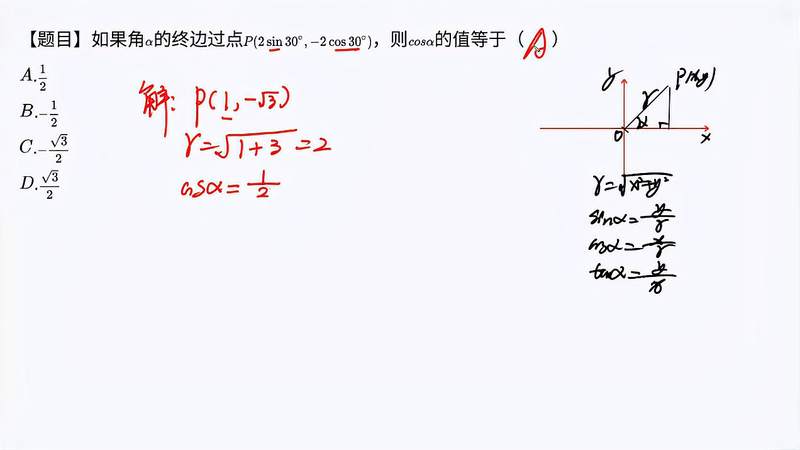 【题目】如果角α的终边过点P(2 sin 30°, −2 cos 30°)，则cosα的值等于（ A ）
A. 1/2
B. −1/2
C. −√3/2
D. √3/2
解: P(1, −√3)
r = √(1+3) = 2
cosα = 1/2
y
P(x,y)
r
α
O
x
r = √(x²+y²)
sinα = y/r
cosα = x/r
tanα = y/x